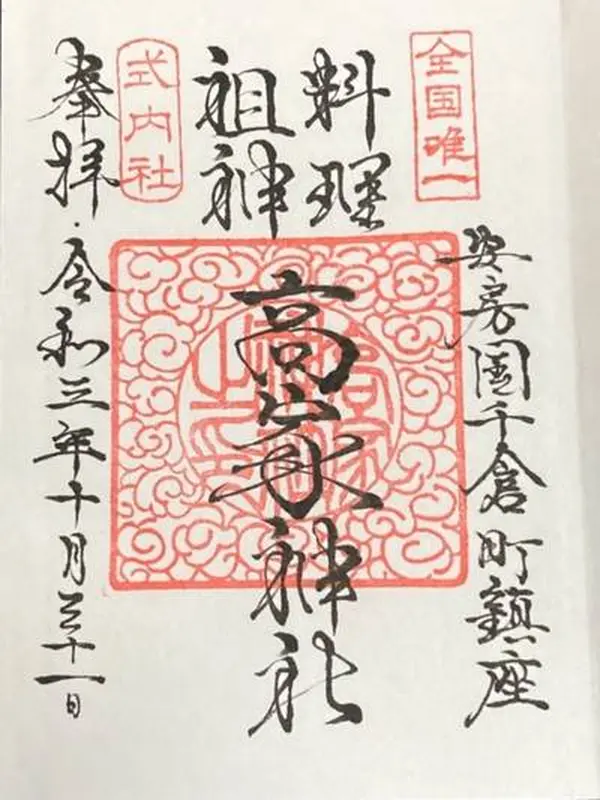 全国唯一
安房国千倉町鎮座
料理
祖神
高家神社
式内社
奉拝・令和三年十月三十一日